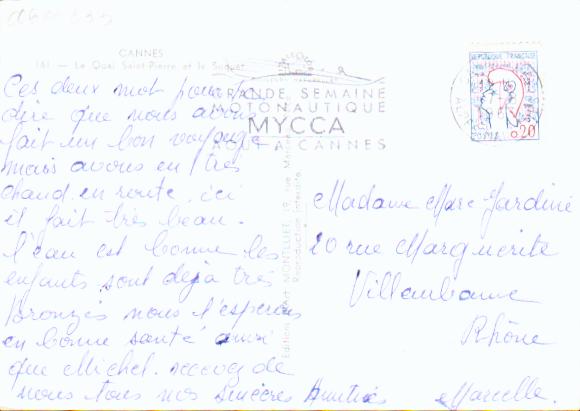 CANNES
161 — Le Quai Saint-Pierre et le Suquet
REPUBLIQUE FRANÇAISE
0,20
GRANDE SEMAINE
MOTONAUTIQUE
MYCCA
CANNES
Ces deux mot pour
dire que nous avons
fait un bon voyage
mais avons eu très
chaud en route, ici
il fait très beau.
l'eau est bonne les
enfants sont déjà très
bronzés nous l'esperons
en bonne santé ainsi
que Michel. recevez de
nous tous nos sincères Amitiés
Marcelle.
Madame Marc Jardiné
20 rue Marguerite
Villeurbanne
Rhône
Editions MONTLUET, 19, rue
Reproduction interdite